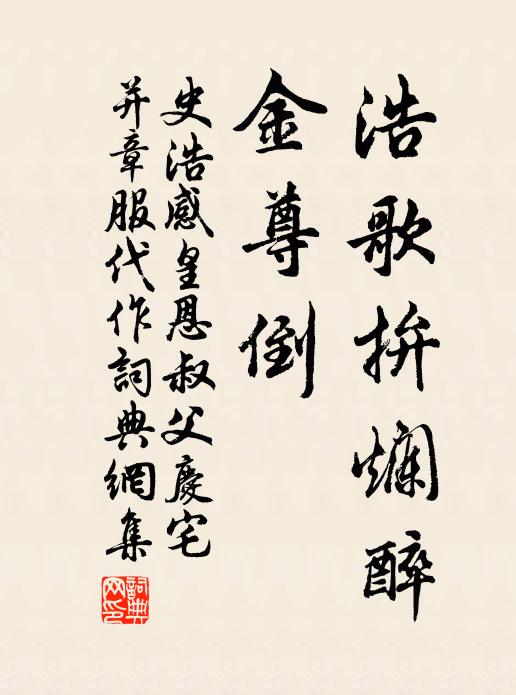 浩歌拚爛醉
金尊倒
史浩感皇恩叔父慶宅
并章服代作詞典網集
詞典網印